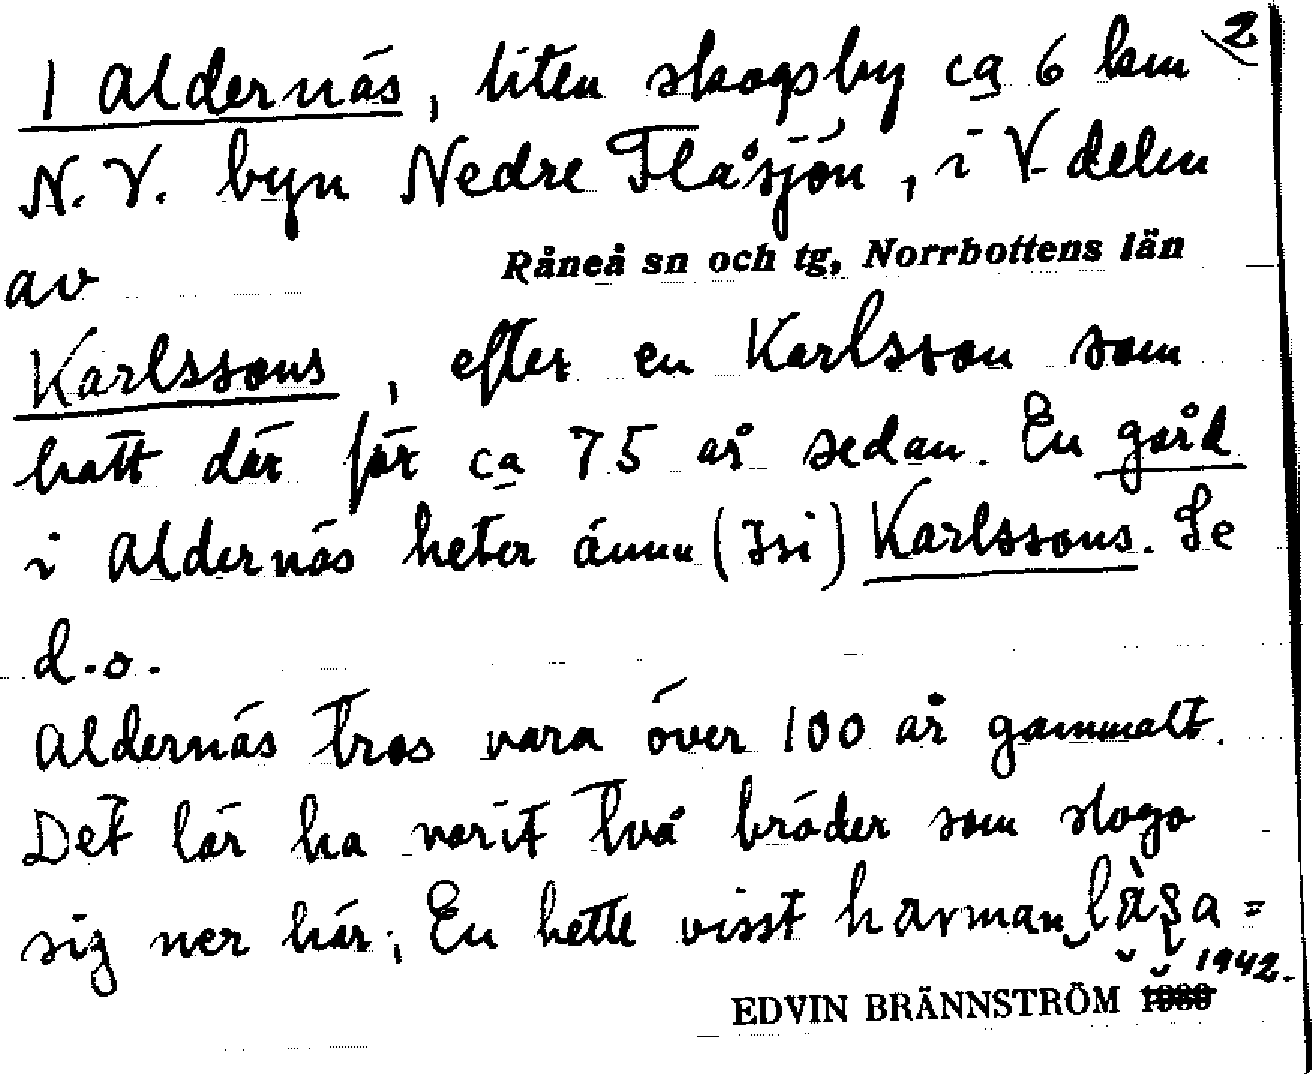 2
I Aldernäs, liten skogsby ca 6 km
N.V. byn Nedre Flåsjön, i V. delen
av
Råneå sn och tg, Norrbottens län
Karlssons, efter en Karlsson som
bott där för ca 75 år sedan. En gård
i Aldernäs heter ännu (Isi) Karlssons. Se
d.o.
Aldernäs tros vara över 100 år gammalt.
Det lär ha varit två bröder som slogo
sig ner här; En hette visst harman låsa=
1942.
EDVIN BRÄNNSTRÖM